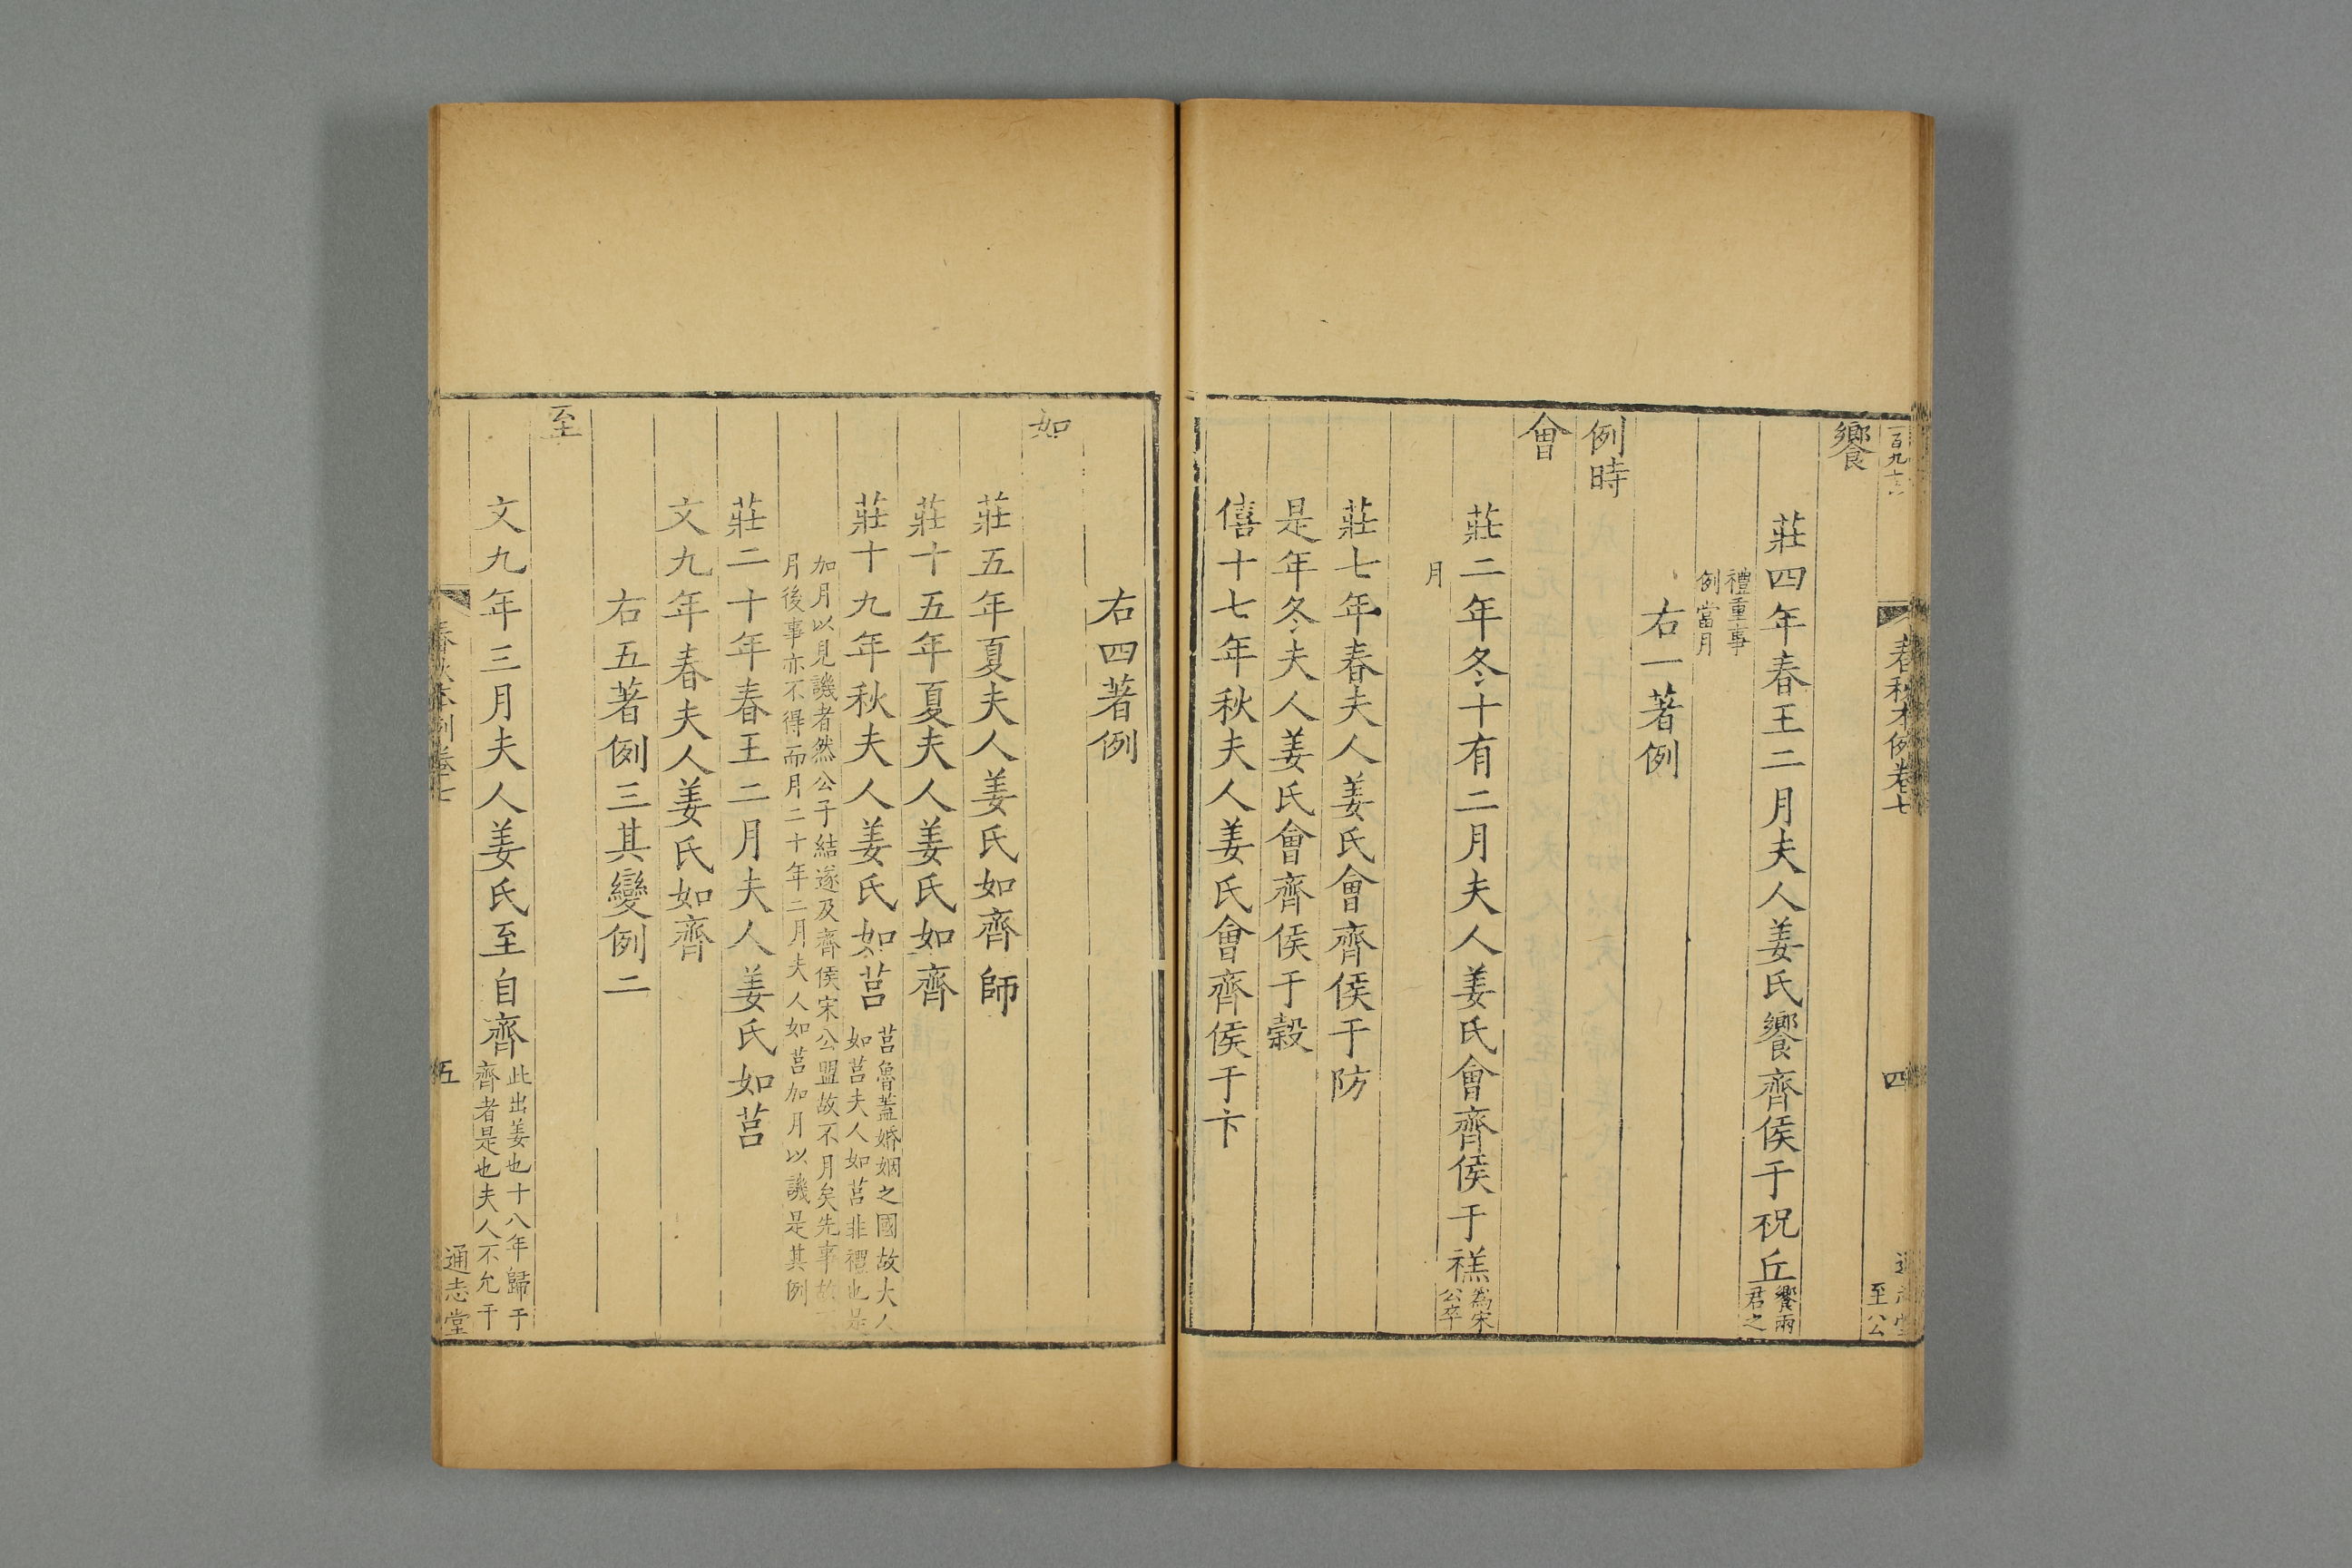 百九十六
春秋本例卷七
四
通志堂
至公
饗
莊四年春王二月夫人姜氏饗齊侯于祝丘饗兩君之
禮重事例當月
右一著例
例時
會
莊二年冬十有二月夫人姜氏會齊侯于禚為宋公卒
月
莊七年春夫人姜氏會齊侯于防
是年冬夫人姜氏會齊侯于穀
僖十七年秋夫人姜氏會齊侯于卞
右四著例
如
莊五年夏夫人姜氏如齊師
莊十五年夏夫人姜氏如齊
莊十九年秋夫人姜氏如莒莒魯蓋婚姻之國故夫人如莒夫人如莒非禮也是
加月以見譏者然公子結遂及齊侯宋公盟故不月矣先事故
月後事亦不得而月二十年二月夫人如莒加月以譏是其例
莊二十年春王二月夫人姜氏如莒
文九年春夫人姜氏如齊
右五著例三其變例二
至
文九年三月夫人姜氏至自齊此出姜也十八年歸于齊者是也夫人不允于
春秋本例卷七
五
通志堂